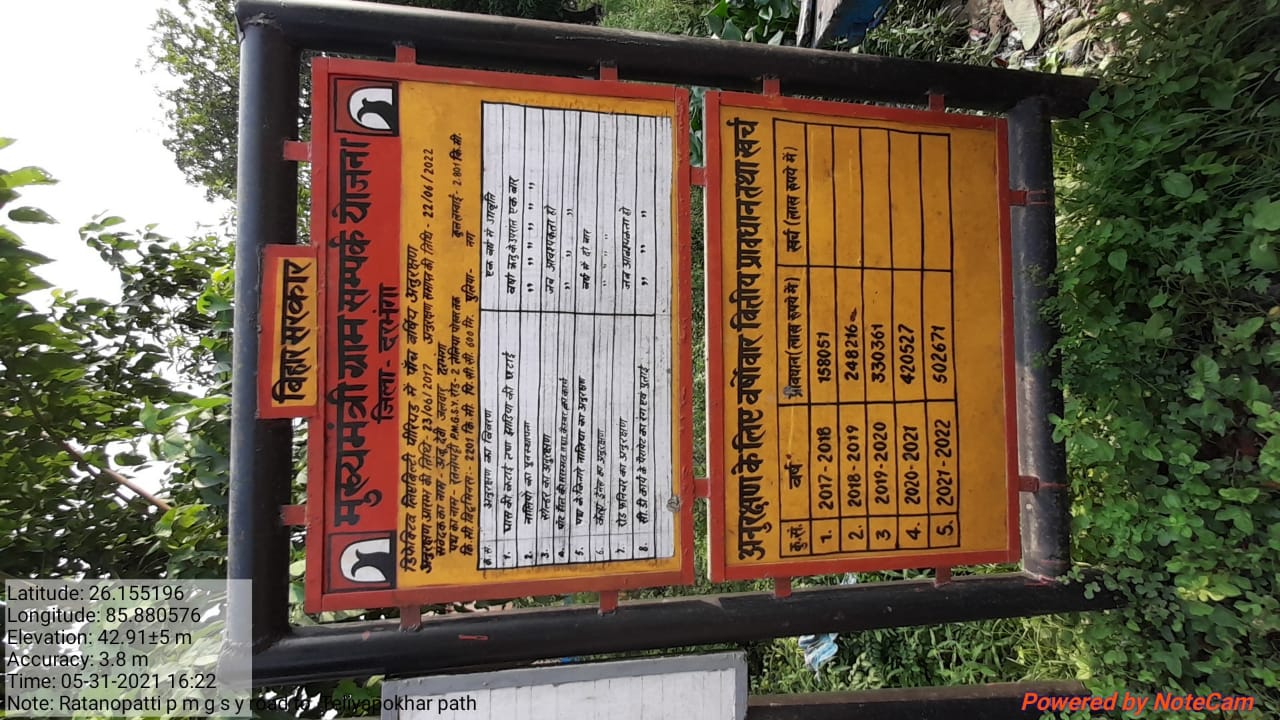 बिहार सरकार
मुख्यमंत्री ग्राम सम्पर्क योजना
जिला- दरभंगा
डिफेक्टिव लियबिलिटी पीरियड में पाँच वर्षीय अनुरक्षण
अनुरक्षण आरम्भ की तिथि:- 23/06/2017 अनुरक्षण समाप्त की तिथि - 22/06/2022
संवेदक का नाम- दरभंगा
पथ का नाम - P.M.G.S.Y. रोड- 2 तेलिया पोखर तक कुल लम्बाई- 2.801 कि.मी.
कि.मी बिटुमिनस:- 2201 कि.मी पि.सी.सी. 600 मि. पुलिया- नग
क्र.सं. अनुरक्षण का विवरण एक वर्ष में आवृति
1. घास की कटाई तथा झाड़ियों की छटाई वर्षा ऋतु के उपरांत एक बार
2. नालियों का पुनर्स्थापना " " " "
3. सोल्डर का अनुरक्षण जब आवश्यकता हो
4. " "
5. पथ के किनारे नालियों का अनुरक्षण वर्ष में दो बार
6. का अनुरक्षण " "
7. रोड फर्निचर का अनुरक्षण जब आवश्यकता हो
8. सी.डी कार्य के पैरापेट का रंग एवं पुताई " "
अनुरक्षण के लिए वर्षोवार वित्तीय प्रावधान तथा खर्च
क्र.सं. वर्ष प्रावधान (लाख रूपये में) खर्च (लाख रूपये में)
1. 2017-2018 158051
2. 2018-2019 248216
3 2019-2020 330361
4. 2020-2021 420527
5. 2021-2022 502671
Latitude: 26.155196
Longitude: 85.880576
Elevation: 42.91±5 m
Accuracy: 3.8 m
Time: 05-31-2021 16:22
Note: Ratanopatti p m g s y road to Teliyapokhar path
Powered by NoteCam